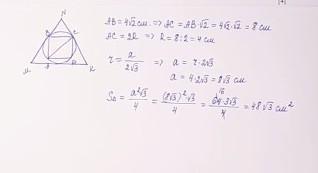 N
B C
A D
M K
AB = 4√2 см ⇒ AC = AB·√2 = 4√2·√2 = 8 см
AC = 2R ⇒ R = 8:2 = 4 см
r = a/2√3 ⇒ a = r·2√3
a = 4·2√3 = 8√3 см
S△ = a²√3/4 = (8√3)²·√3/4 = 64·3√3/4 = 48√3 см²
16